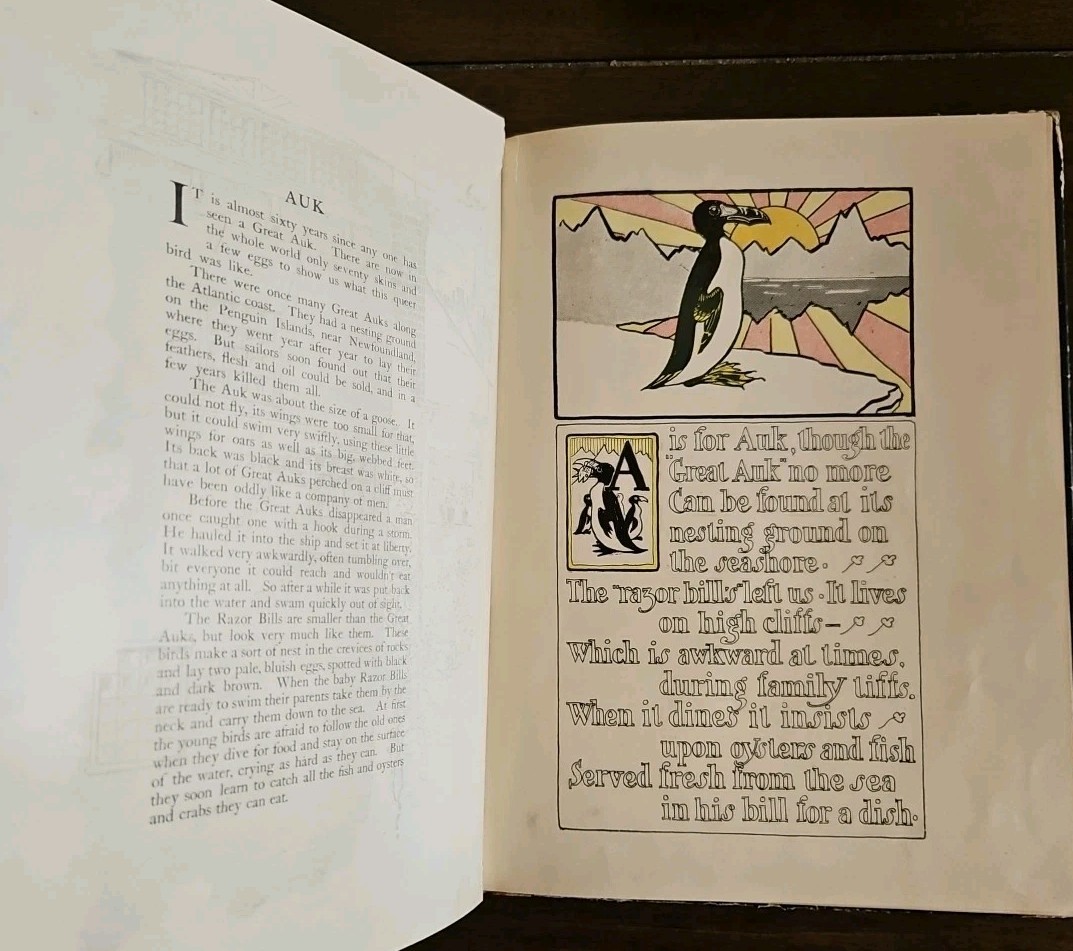 AUK
IT is almost sixty years since any one has
seen a Great Auk. There are now in
the whole world only seventy skins and
a few eggs to show us what this queer
bird was like.
There were once many Great Auks along
the Atlantic coast. They had a nesting ground
on the Penguin Islands, near Newfoundland,
where they went year after year to lay their
eggs. But sailors soon found out that their
feathers, flesh and oil could be sold, and in a
few years killed them all.
The Auk was about the size of a goose. It
could not fly, its wings were too small for that,
but it could swim very swiftly, using these little
wings for oars as well as its big, webbed feet.
Its back was black and its breast was white, so
that a lot of Great Auks perched on a cliff must
have been oddly like a company of men.
Before the Great Auks disappeared a man
once caught one with a hook during a storm.
He hauled it into the ship and set it at liberty.
It walked very awkwardly, often tumbling over,
bit everyone it could reach and wouldn't eat
anything at all. So after a while it was put back
into the water and swam quickly out of sight.
The Razor Bills are smaller than the Great
Auks, but look very much like them. These
birds make a sort of nest in the crevices of rocks
and lay two pale, bluish eggs, spotted with black
and dark brown. When the baby Razor Bills
are ready to swim their parents take them by the
neck and carry them down to the sea. At first
the young birds are afraid to follow the old ones
when they dive for food and stay on the surface
of the water, crying as hard as they can. But
they soon learn to catch all the fish and oysters
and crabs they can eat.
A is for Auk, though the
"Great Auk" no more
Can be found at its
nesting ground on
the seashore.
The "razor bill's" left us. It lives
on high cliffs—
Which is awkward at times,
during family tiffs.
When it dines it insists
upon oysters and fish
Served fresh from the sea
in his bill for a dish.